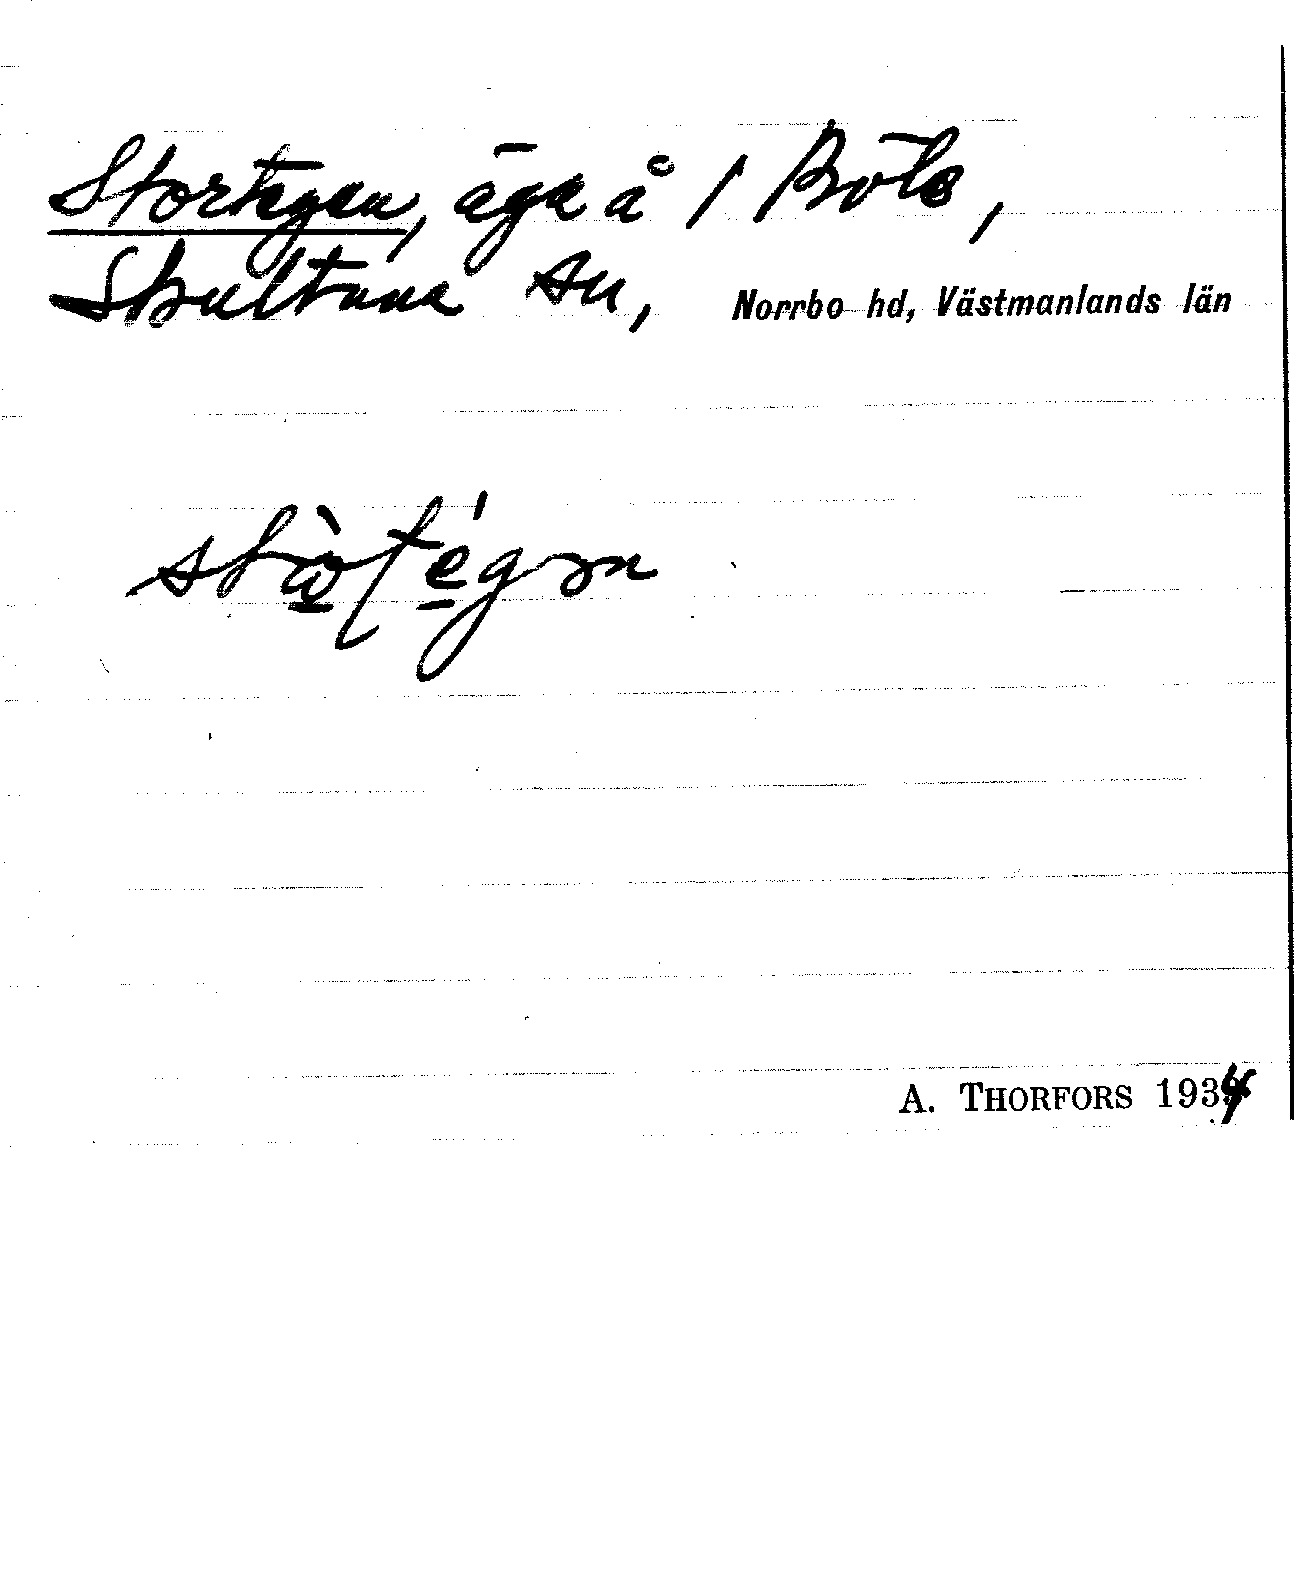 Stortegen, äga å 1 Böle,
Skultuna sn, Norrbo hd, Västmanlands län
A. THORFORS 1934